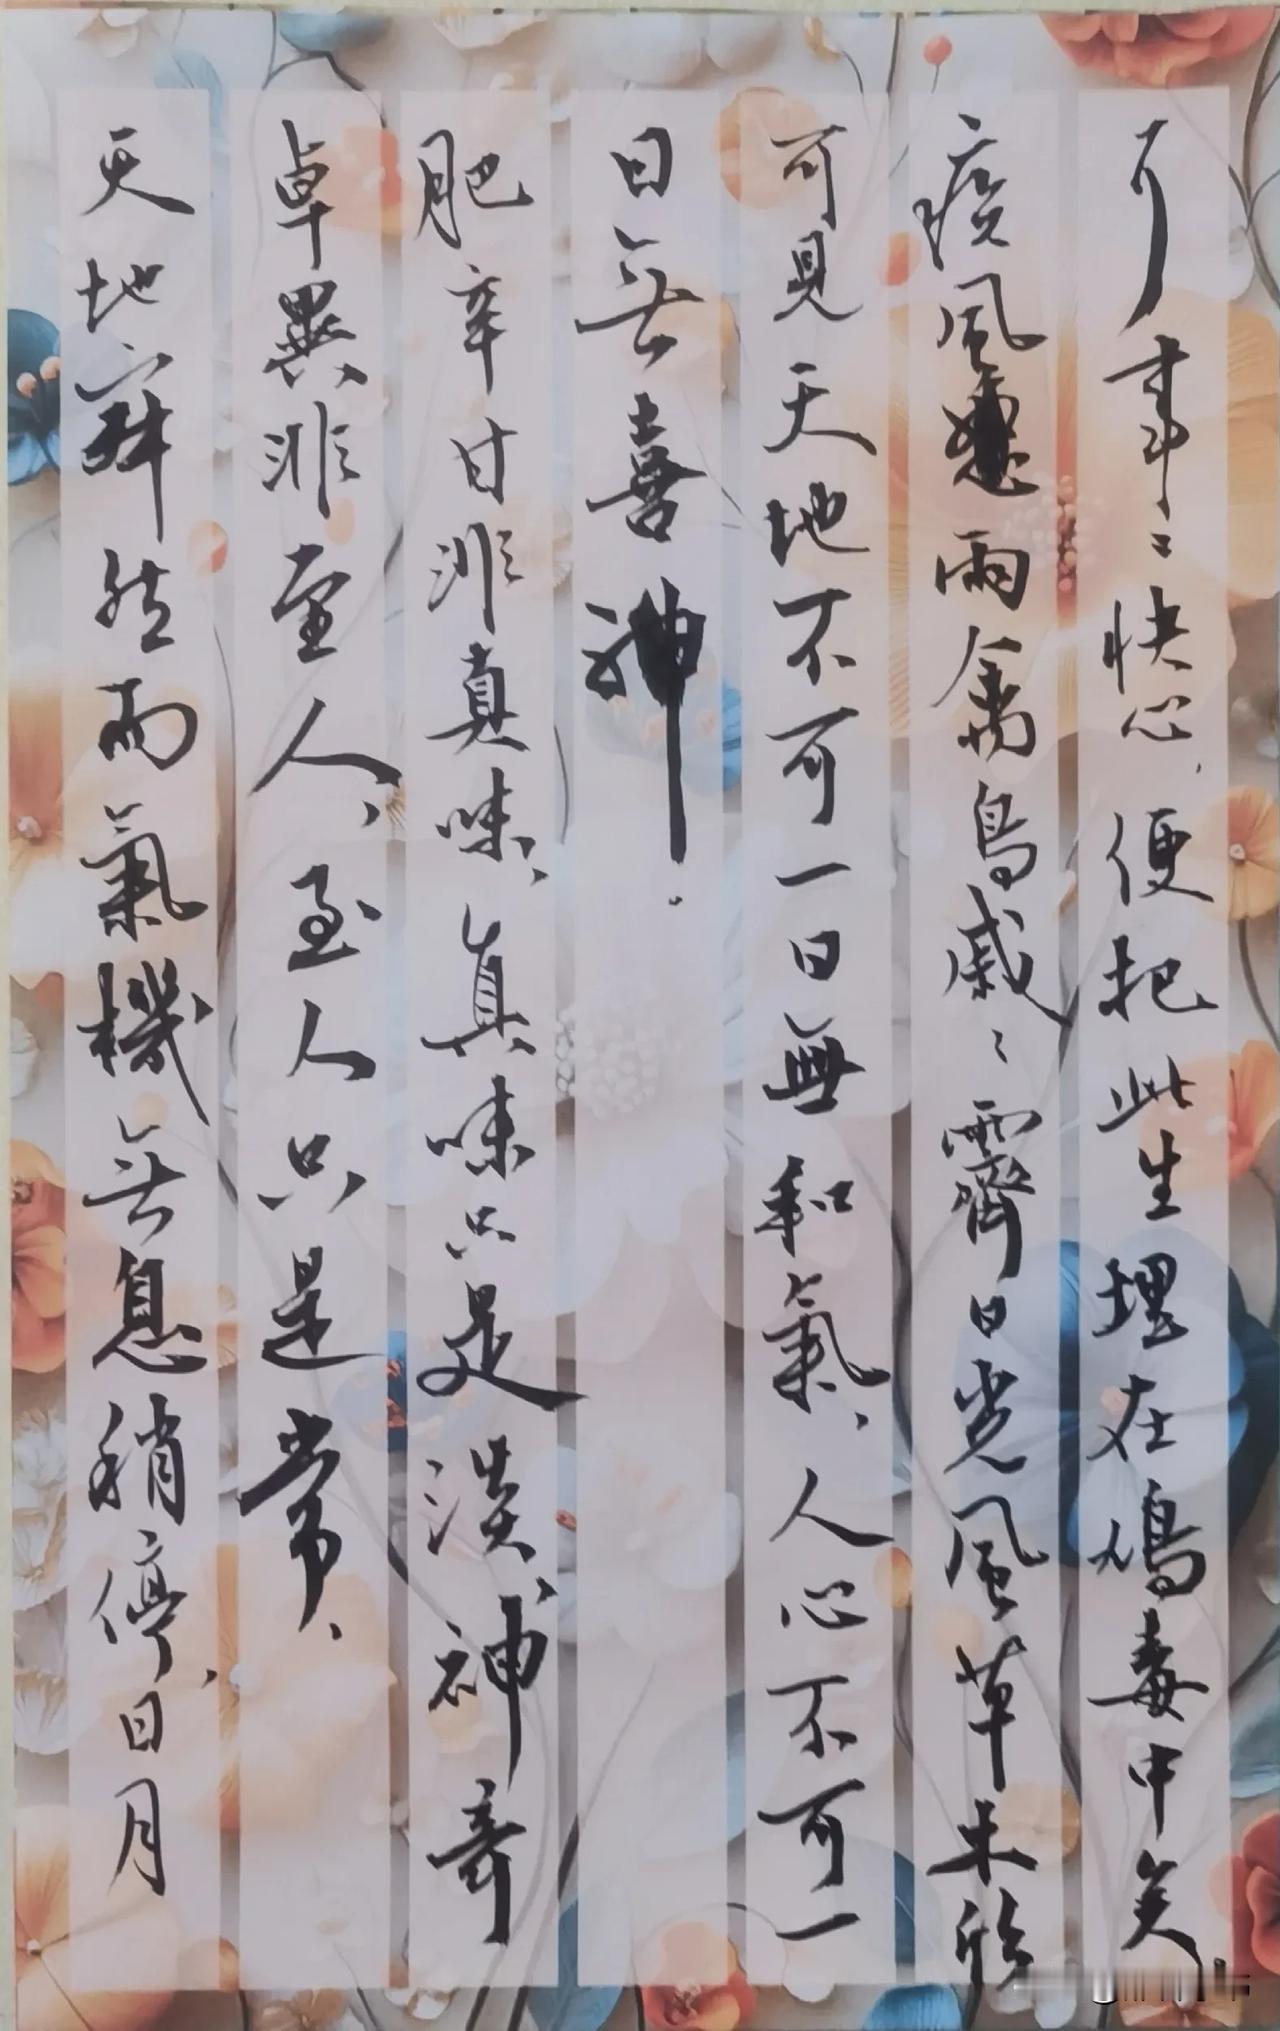 耳事〻快心、便把此生埋在鴆毒中矣
疾風怒雨禽鳥戚〻霽日光風草木欣
可見天地不可一日無和氣、人心不可一
日無喜神.
肥辛甘非真味、真味只是淡、神奇
卓異非至人、至人只是常、
天地寂然而氣機無息稍停、日月